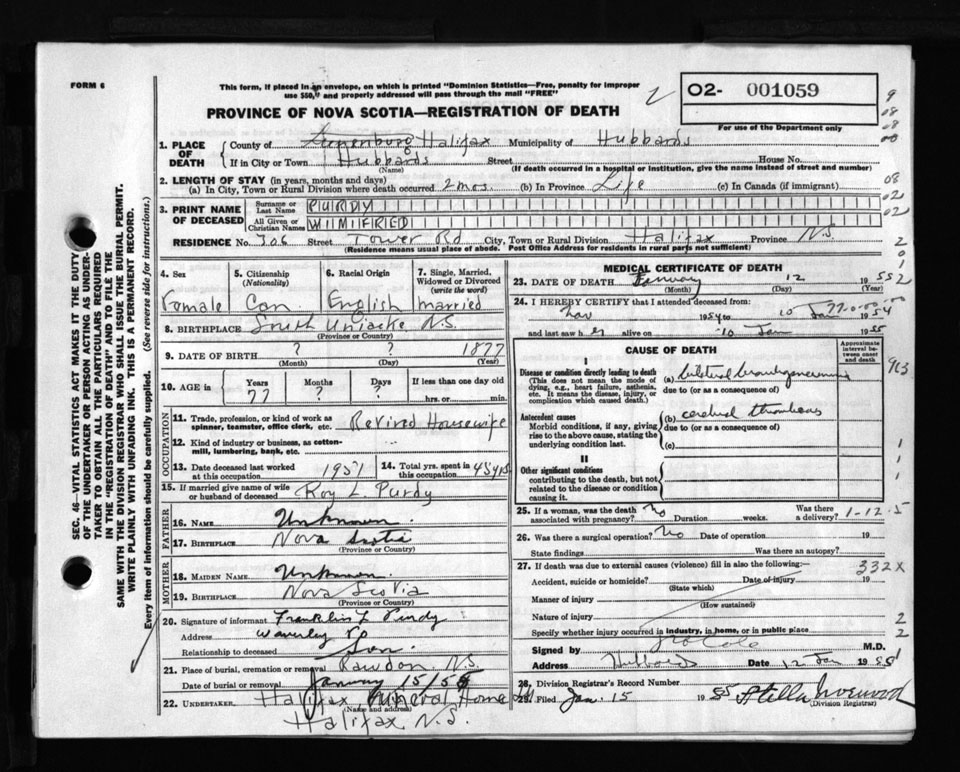 FORM 6
This form, if placed in an envelope, on which is printed "Dominion Statistics—Free, penalty for improper
use $50," and properly addressed will pass through the mail "FREE"
O2- 001059
For use of the Department only
PROVINCE OF NOVA SCOTIA—REGISTRATION OF DEATH
1. PLACE OF DEATH
County of Lunenburg Halifax Municipality of Hubbards
If in City or Town Hubbards Street House No.
(Name) (If death occurred in a hospital or institution, give the name instead of street and number)
2. LENGTH OF STAY (in years, months and days)
(a) In City, Town or Rural Division where death occurred 2 mos. (b) In Province Life (c) In Canada (if immigrant)
3. PRINT NAME OF DECEASED
Surname or Last Name PURDY
All Given or Christian Names WINIFRED
RESIDENCE No. 306 Street Tower Rd City, Town or Rural Division Halifax Province N.S.
(Residence means usual place of abode. Post Office Address for residents in rural parts not sufficient)
4. Sex
Female
5. Citizenship (Nationality)
Can
6. Racial Origin
English
7. Single, Married, Widowed or Divorced (write the word)
married
8. BIRTHPLACE South Uniacke N.S.
(Province or Country)
9. DATE OF BIRTH ? ? 1877
(Month) (Day) (Year)
10. AGE in
Years Months Days If less than one day old
77 ? ? hrs. or min.
OCCUPATION
11. Trade, profession, or kind of work as spinner, teamster, office clerk, etc. Retired Housewife
12. Kind of industry or business, as cotton-mill, lumbering, bank, etc.
13. Date deceased last worked at this occupation 1951
14. Total yrs. spent in this occupation 45 yrs
15. If married give name of wife or husband of deceased Roy L. Purdy
FATHER
16. NAME Unknown.
17. BIRTHPLACE Nova Scotia
(Province or Country)
MOTHER
18. MAIDEN NAME Unknown.
19. BIRTHPLACE Nova Scotia
(Province or Country)
20. Signature of informant Franklin L Purdy
Address Waverley Rd
Relationship to deceased Son.
21. Place of burial, cremation or removal Rawdon N.S.
Date of burial or removal January 15/55
22. UNDERTAKER Halifax Funeral Home
(Name and address)
Halifax N.S.
MEDICAL CERTIFICATE OF DEATH
23. DATE OF DEATH January 12 1955
(Month) (Day) (Year)
24. I HEREBY CERTIFY that I attended deceased from
Nov 1954 to 10 Jan 1954
and last saw her alive on 10 Jan 1955
CAUSE OF DEATH
Approximate interval between onset and death
I
Disease or condition directly leading to death
(This does not mean the mode of dying, e.g., heart failure, asthenia, etc. It means the disease, injury, or complication which caused death.)
(a) bilateral bronchopneumonia
due to (or as a consequence of)
Antecedent causes
Morbid conditions, if any, giving rise to the above cause, stating the underlying condition last.
(b) cerebral thrombosis
due to (or as a consequence of)
(c)
II
Other significant conditions contributing to the death, but not related to the disease or condition causing it.
25. If a woman, was the death associated with pregnancy? No Duration weeks. Was there a delivery? 1-12-5
26. Was there a surgical operation? No Date of operation 19
State findings Was there an autopsy?
27. If death was due to external causes (violence) fill in also the following:— 332X
Accident, suicide or homicide? Date of injury 19
(State which)
Manner of injury
(How sustained)
Nature of injury
Specify whether injury occurred in industry, in home, or in public place
Signed by M.D.
Address Hubbards Date 12 Jan 1955
28. Division Registrar's Record Number
29. Filed Jan. 15 1955 Stella Norwood
(Division Registrar)
SEC. 46—VITAL STATISTICS ACT MAKES IT THE DUTY
OF THE UNDERTAKER OR PERSON ACTING AS UNDER-
TAKER TO OBTAIN ALL THE PARTICULARS REQUIRED
IN THE "REGISTRATION OF DEATH" AND TO FILE THE
SAME WITH THE DIVISION REGISTRAR WHO SHALL ISSUE THE BURIAL PERMIT.
WRITE PLAINLY WITH UNFADING INK. THIS IS A PERMANENT RECORD.
Every item of information should be carefully supplied. (See reverse side for instructions.)